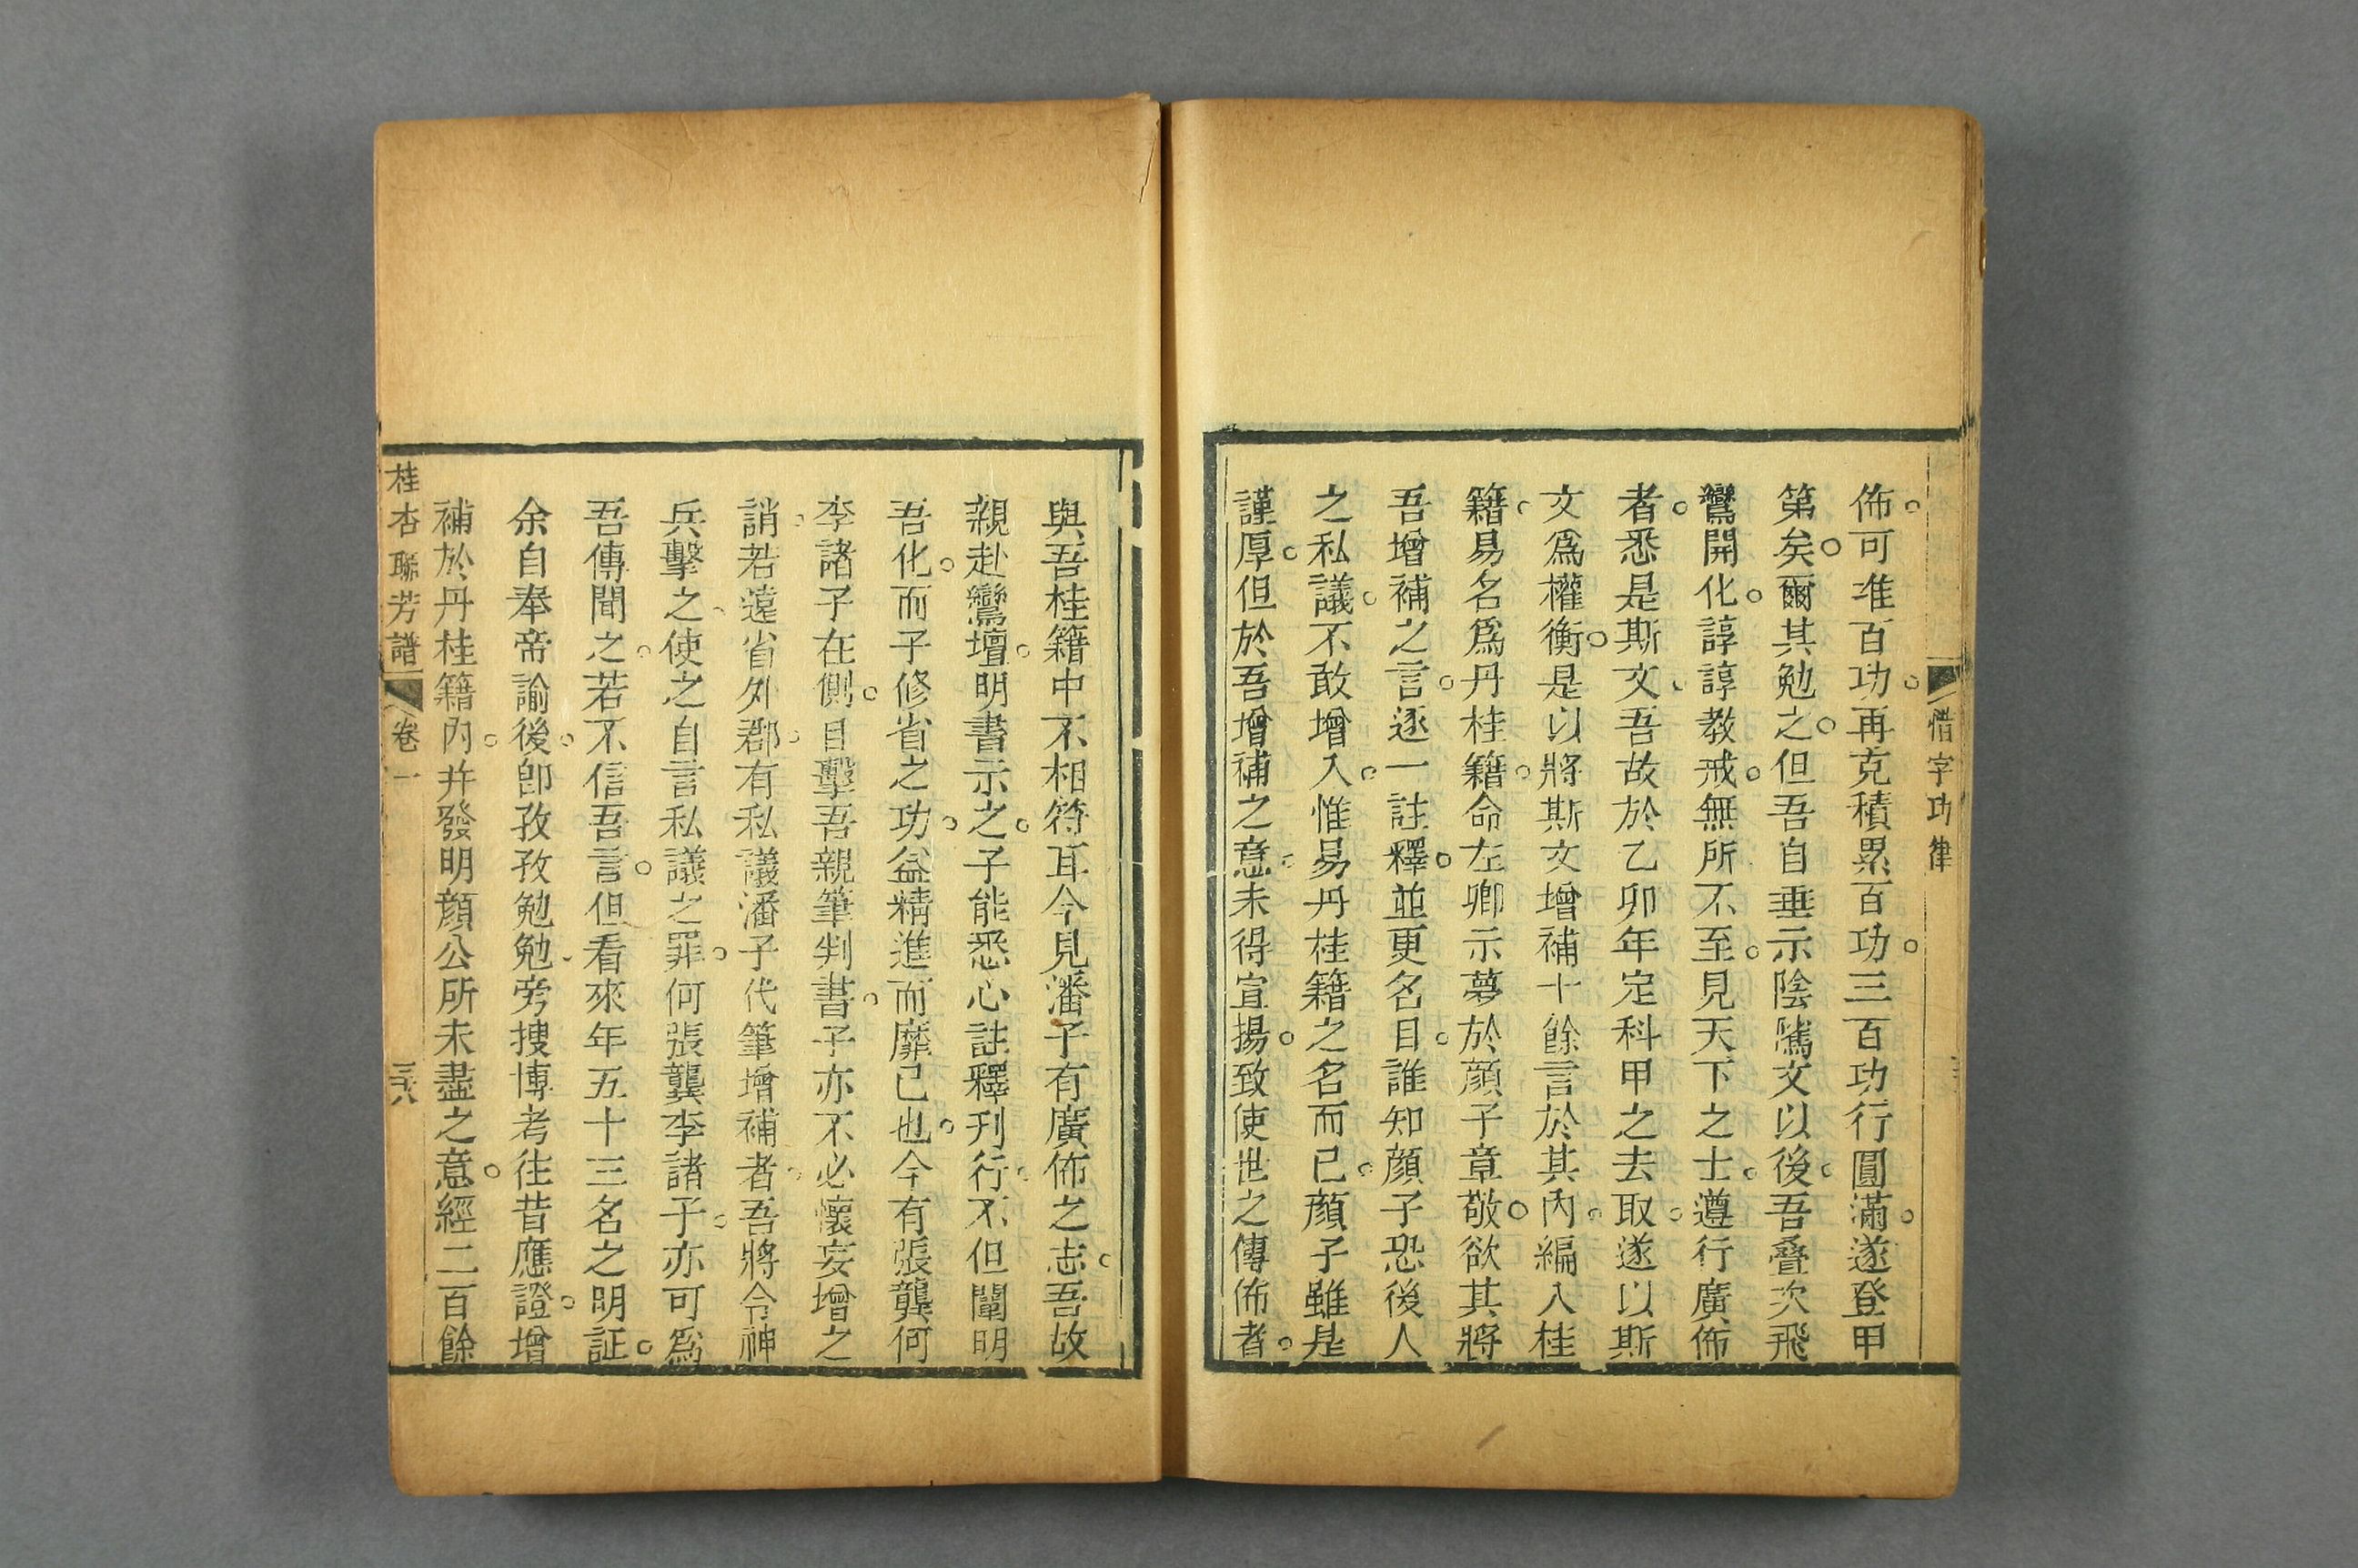 惜字功律
佈可准百功再克積累百功三百功行圓滿遂登甲
第矣爾其勉之但吾自垂示陰隲文以後吾叠次飛
鸞開化諄諄教戒無所不至見天下之士遵行廣佈
者悉是斯文吾故於乙卯年定科甲之去取遂以斯
文爲權衡是以將斯文增補十餘言於其內編入桂
籍易名爲丹桂籍命左卿示夢於顔子章敬欲其將
吾增補之言逐一註釋並更名目誰知顔子恐後人
之私議不敢增入惟易丹桂籍之名而已顔子雖是
謹厚但於吾增補之意未得宣揚致使世之傳佈者
與吾桂籍中不相符耳今見潘子有廣佈之志吾故
親赴鸞壇明書示之子能悉心註釋刋行不但闡明
吾化而子修省之功益精進而靡已也今有張龔何
李諸子在側目擊吾親筆判書子亦不必懷妄增之
誚若遠省外郡有私議潘子代筆增補者吾將令神
兵擊之使之自言私議之罪何張龔李諸子亦可爲
吾傳聞之若不信吾言但看來年五十三名之明証
余自奉帝諭後卽孜孜勉勉旁搜博考往昔應證增
補於丹桂籍內幷發明顔公所未盡之意經二百餘
桂杏聯芳譜 卷一 三八